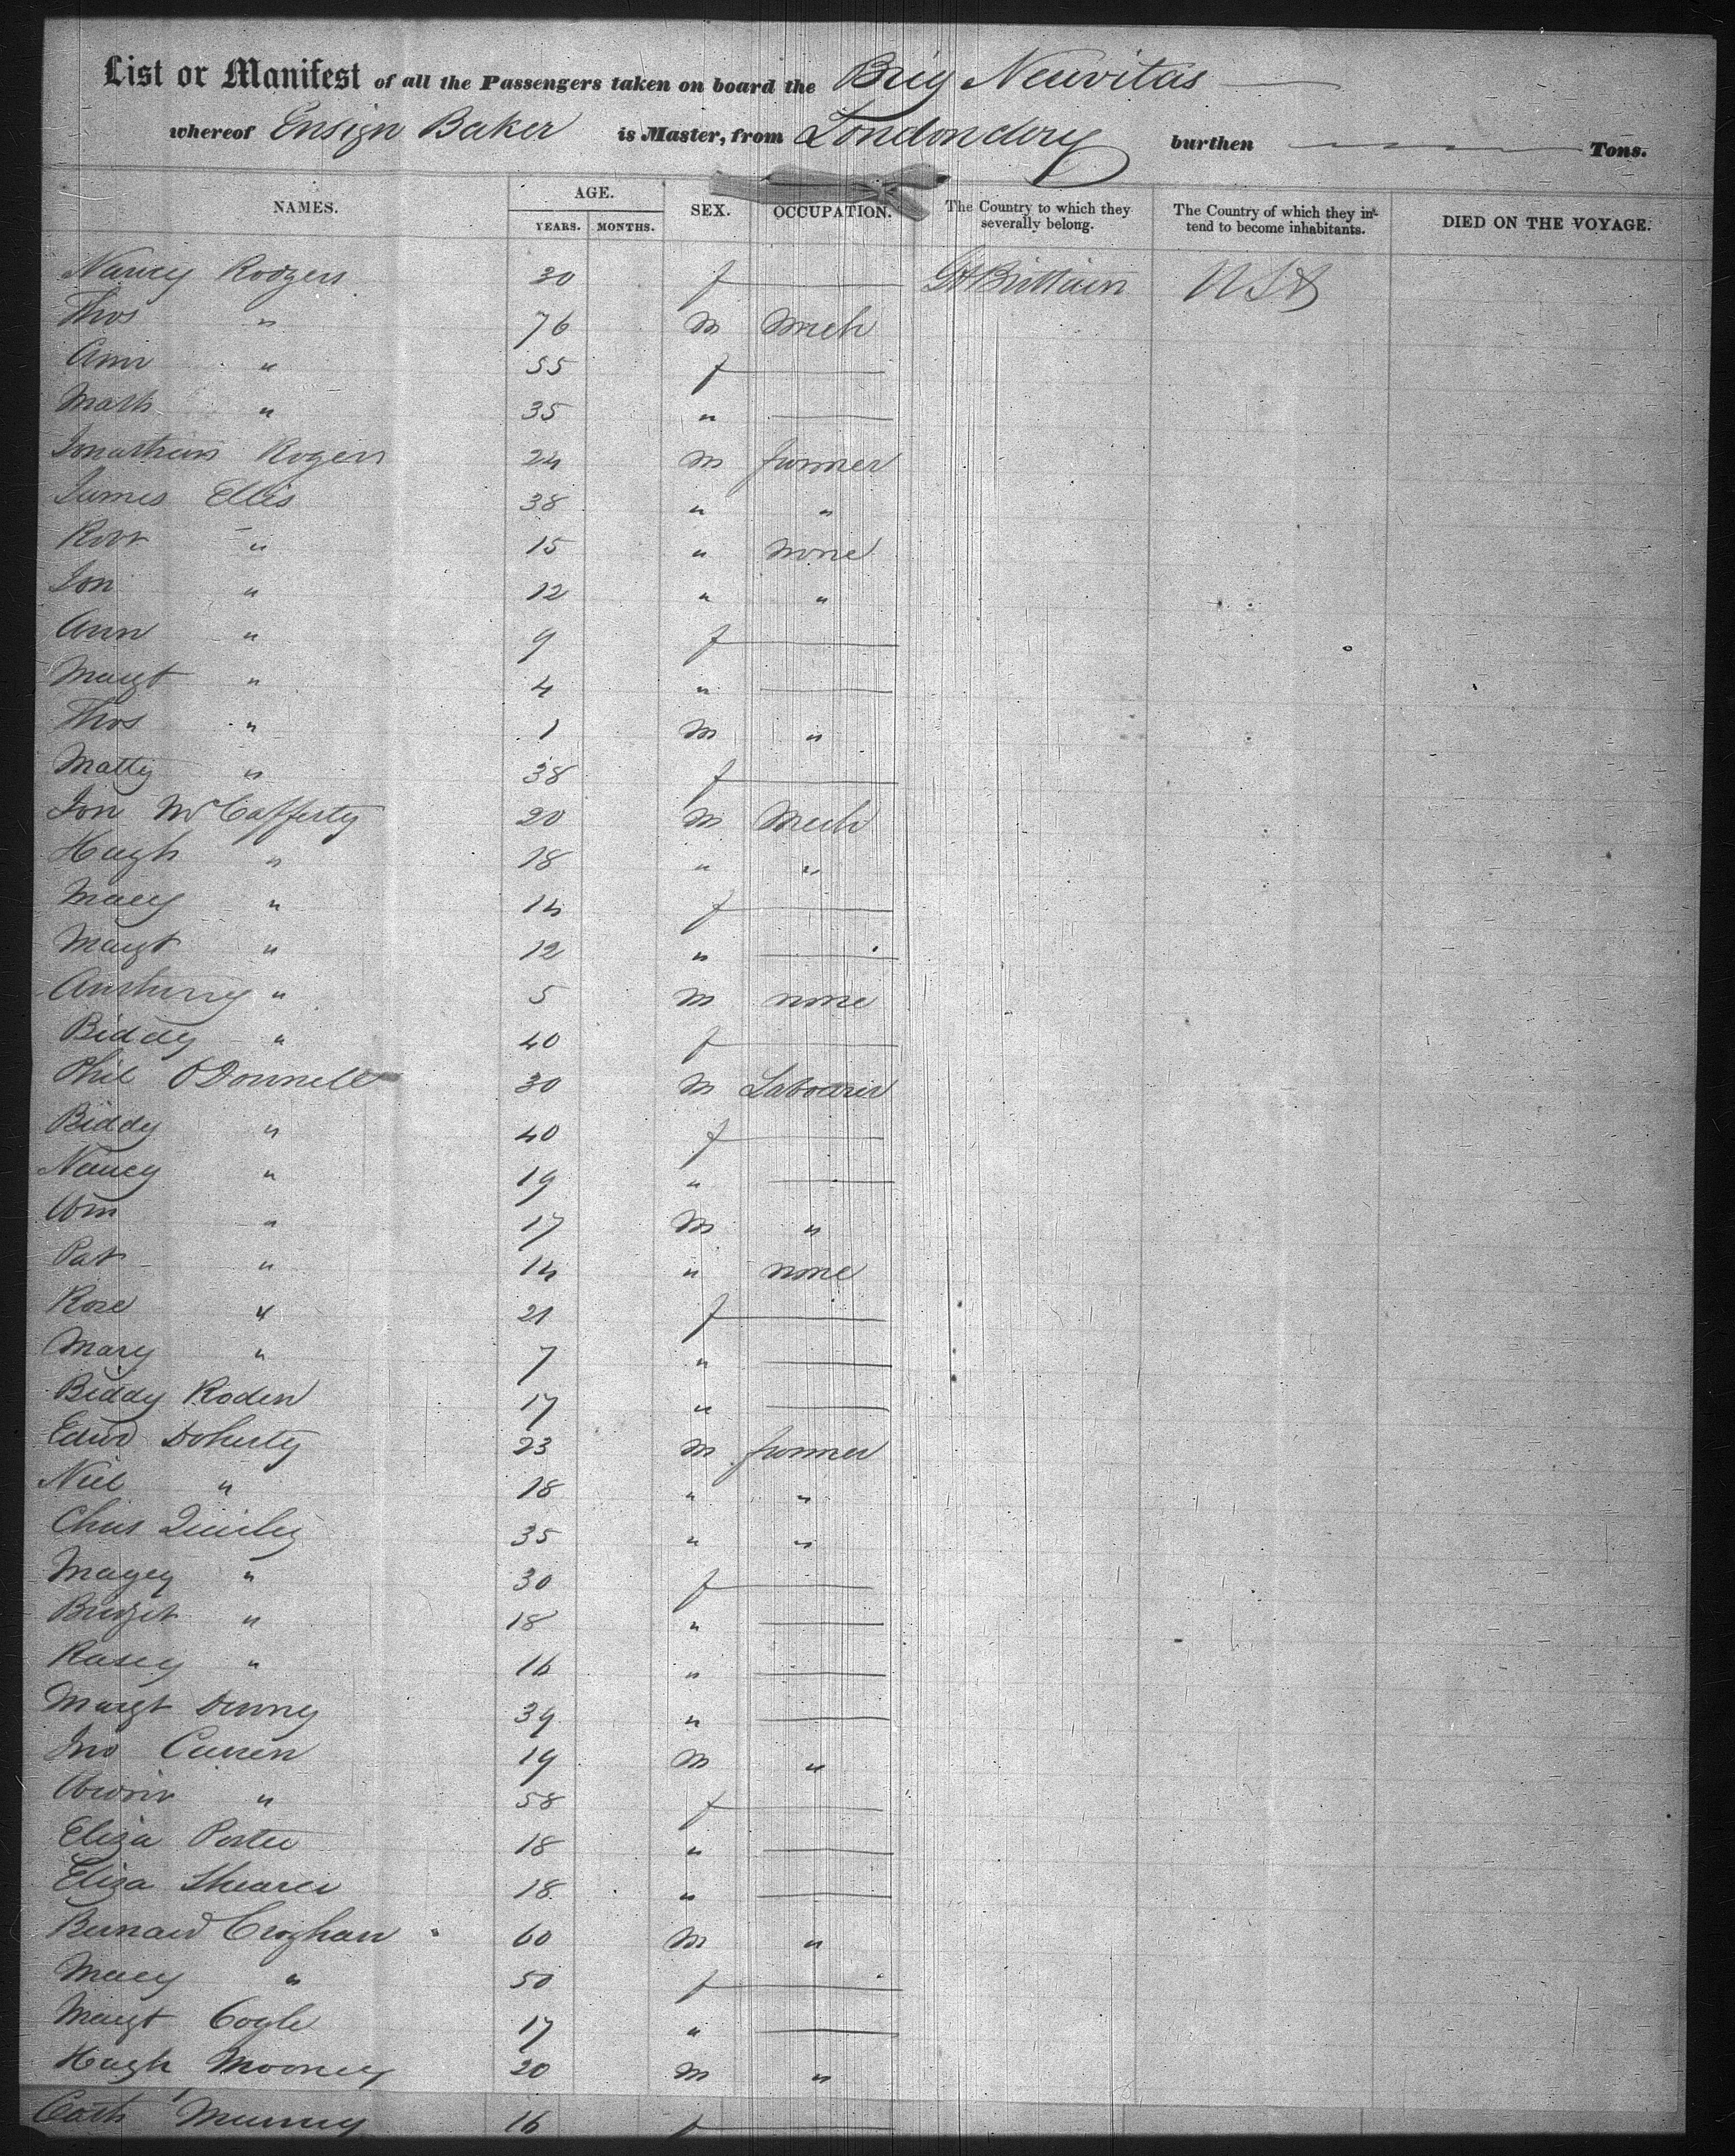 List or Manifest of all the Passengers taken on board the Brig Neuvitas
whereof Ensign Baker is Master, from Londondery burthen Tons.
NAMES. AGE. YEARS. MONTHS. SEX. OCCUPATION. The Country to which they severally belong. The Country of which they intend to become inhabitants. DIED ON THE VOYAGE.
Nancy Rodgers 30 f Gt Brittain USA
Thos " 76 m Mech
Ann " 55 f
Math " 35 "
Jonathan Rogers 24 m farmer
James Ellis 38 " "
Robt " 15 " none
Jon " 12 " "
Ann " 9 f
Margt " 4 "
Thos " 1 m "
Matty " 38 f
Jon McCafferty 20 m Mech
Hugh " 18 " "
Mary " 14 f
Margt " 12 "
Anthony " 5 m none
Biddy " 40 f
Phil O'Donnell 30 m Labourer
Biddy " 40 f
Nancy " 19 "
Wm " 17 m "
Pat " 14 " none
Rose " 21 f
Mary " 7 "
Biddy Roden 17 "
Edwd Doherty 23 m farmer
Niel " 18 " "
Chas 35 " "
Magey " 30 f
Bridget " 18 "
Rosey " 16 "
Margt Denny 39 "
Jno Curren 19 m "
" 58 f
Eliza Porter 18 "
Eliza Shearer 18 "
Bernard Croghan 60 m "
Mary " 50 f
Margt Coyle 17 "
Hugh Mooney 20 m "
Cath Murray 16 f